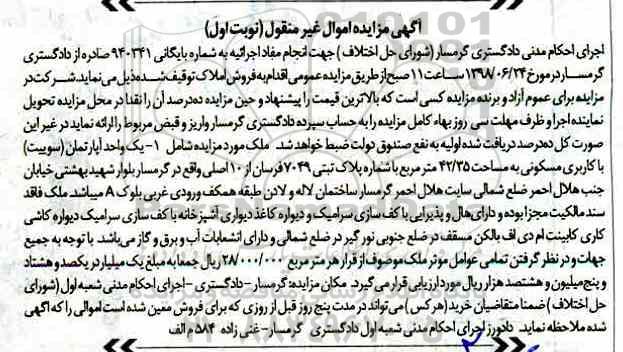 آگهی مزایده اموال غیر منقول (نوبت اول)
اجرای احکام مدنی دادگستری گرمسار (شورای حل اختلاف) جهت انجام مفاد اجرائیه به شماره بایگانی ۹۴۰۳۴۱ صادره از دادگستری
گرمسار در مورخ ۱۳۹۸/۰۶/۲۴ ساعت ۱۱ صبح از طریق مزایده عمومی اقدام به فروش املاک توقیف شده ذیل می نماید. شرکت در
مزایده برای عموم آزاد و برنده مزایده کسی است که بالاترین قیمت را پیشنهاد و حین مزایده ده درصد آن را نقدا در محل مزایده تحویل
نماینده اجرا و ظرف مهلت سی روز بهاء کامل مزایده را به حساب سپرده دادگستری گرمسار واریز و قبض مربوط را ارائه نماید در غیر این
صورت کل ده درصد دریافت شده اولیه به نفع صندوق دولت ضبط خواهد شد. ملک مورد مزایده شامل ۱- یک واحد آپارتمان (سوییت)
با کاربری مسکونی به مساحت ۴۲/۳۵ متر مربع با شماره پلاک ثبتی ۷۰۴۹ فرسان از ۱۰ اصلی واقع در گرمسار بلوار شهید بهشتی خیابان
جنب هلال احمر ضلع شمالی سایت هلال احمر گرمسار ساختمان لاله و لادن طبقه همکف ورودی غربی بلوک A میباشد. ملک فاقد
سند مالکیت مجزا بوده و دارای هال و پذیرایی با کف سازی سرامیک و دیواره کاغذ دیواری آشپزخانه با کف سازی سرامیک دیواره کاشی
کاری کابینت ام دی اف بالکن مسقف در ضلع جنوبی نورگیر در ضلع شمالی و دارای انشعابات آب و برق و گاز می باشد. با توجه به جمیع
جهات و در نظر گرفتن تمامی عوامل موثر ملک موصوف از قرار هر متر مربع ۲۸/۰۰۰/۰۰۰ ریال جمعا به مبلغ یک میلیارد و یکصد و هشتاد
و پنج میلیون و هشتصد هزار ریال مورد ارزیابی قرار می گیرد. مکان مزایده: گرمسار – دادگستری – اجرای احکام مدنی شعبه اول (شورای
حل اختلاف) ضمنا متقاضیان خرید (هر کس) می تواند در مدت پنج روز قبل از روزی که برای فروش معین شده است اموالی را که آگهی
شده ملاحظه نماید. دادورز اجرای احکام مدنی شعبه اول دادگستری گرمسار - غنی زاده ۵۸۴ م الف